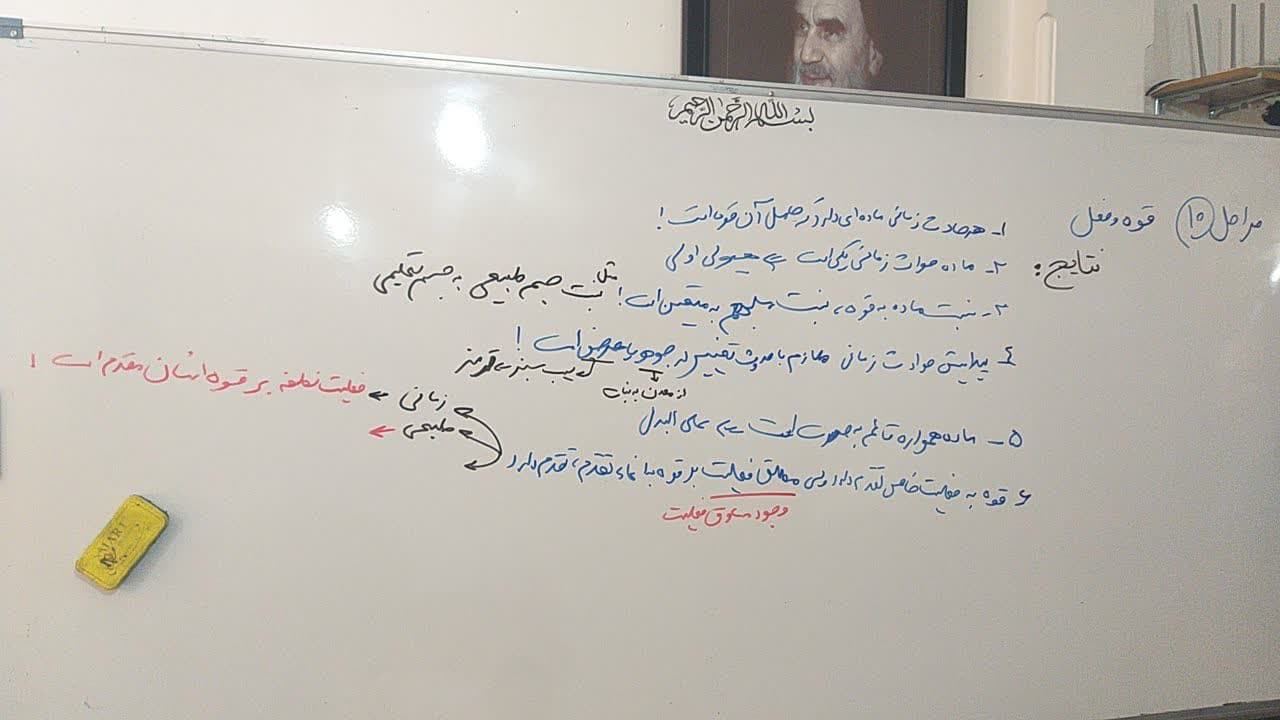 بسم الله الرحمن الرحیم
مراحل ۱۰ قوه و فعل
نتایج:
۱- هر حادث زمانی ماده ای دارد که حامل آن قوه است!
۲- ماده حوادث زمانی یکی است هیولی اولی
۳- نسبت ماده به قوه، نسبت مبهم به متعین است! مثل نسبت جسم طبیعی به جسم تعلیمی
۴- پیدایش حوادث زمانی ملازم با حدوث تغییر در جوهر یا عرض است!
از معدن به نبات
سیب سبز قرمز
۵- ماده همواره قائم به صورت است علی البدل
۶ قوه به فعلیت خاص تقدم دارد ولی مطلق فعلیت بر قوه به انحاء تقدم، تقدم دارد
وجود مساوق فعلیت
زمانی ← فعلیت نطفه بر قوه انسان مقدم است!
طبیعی ←